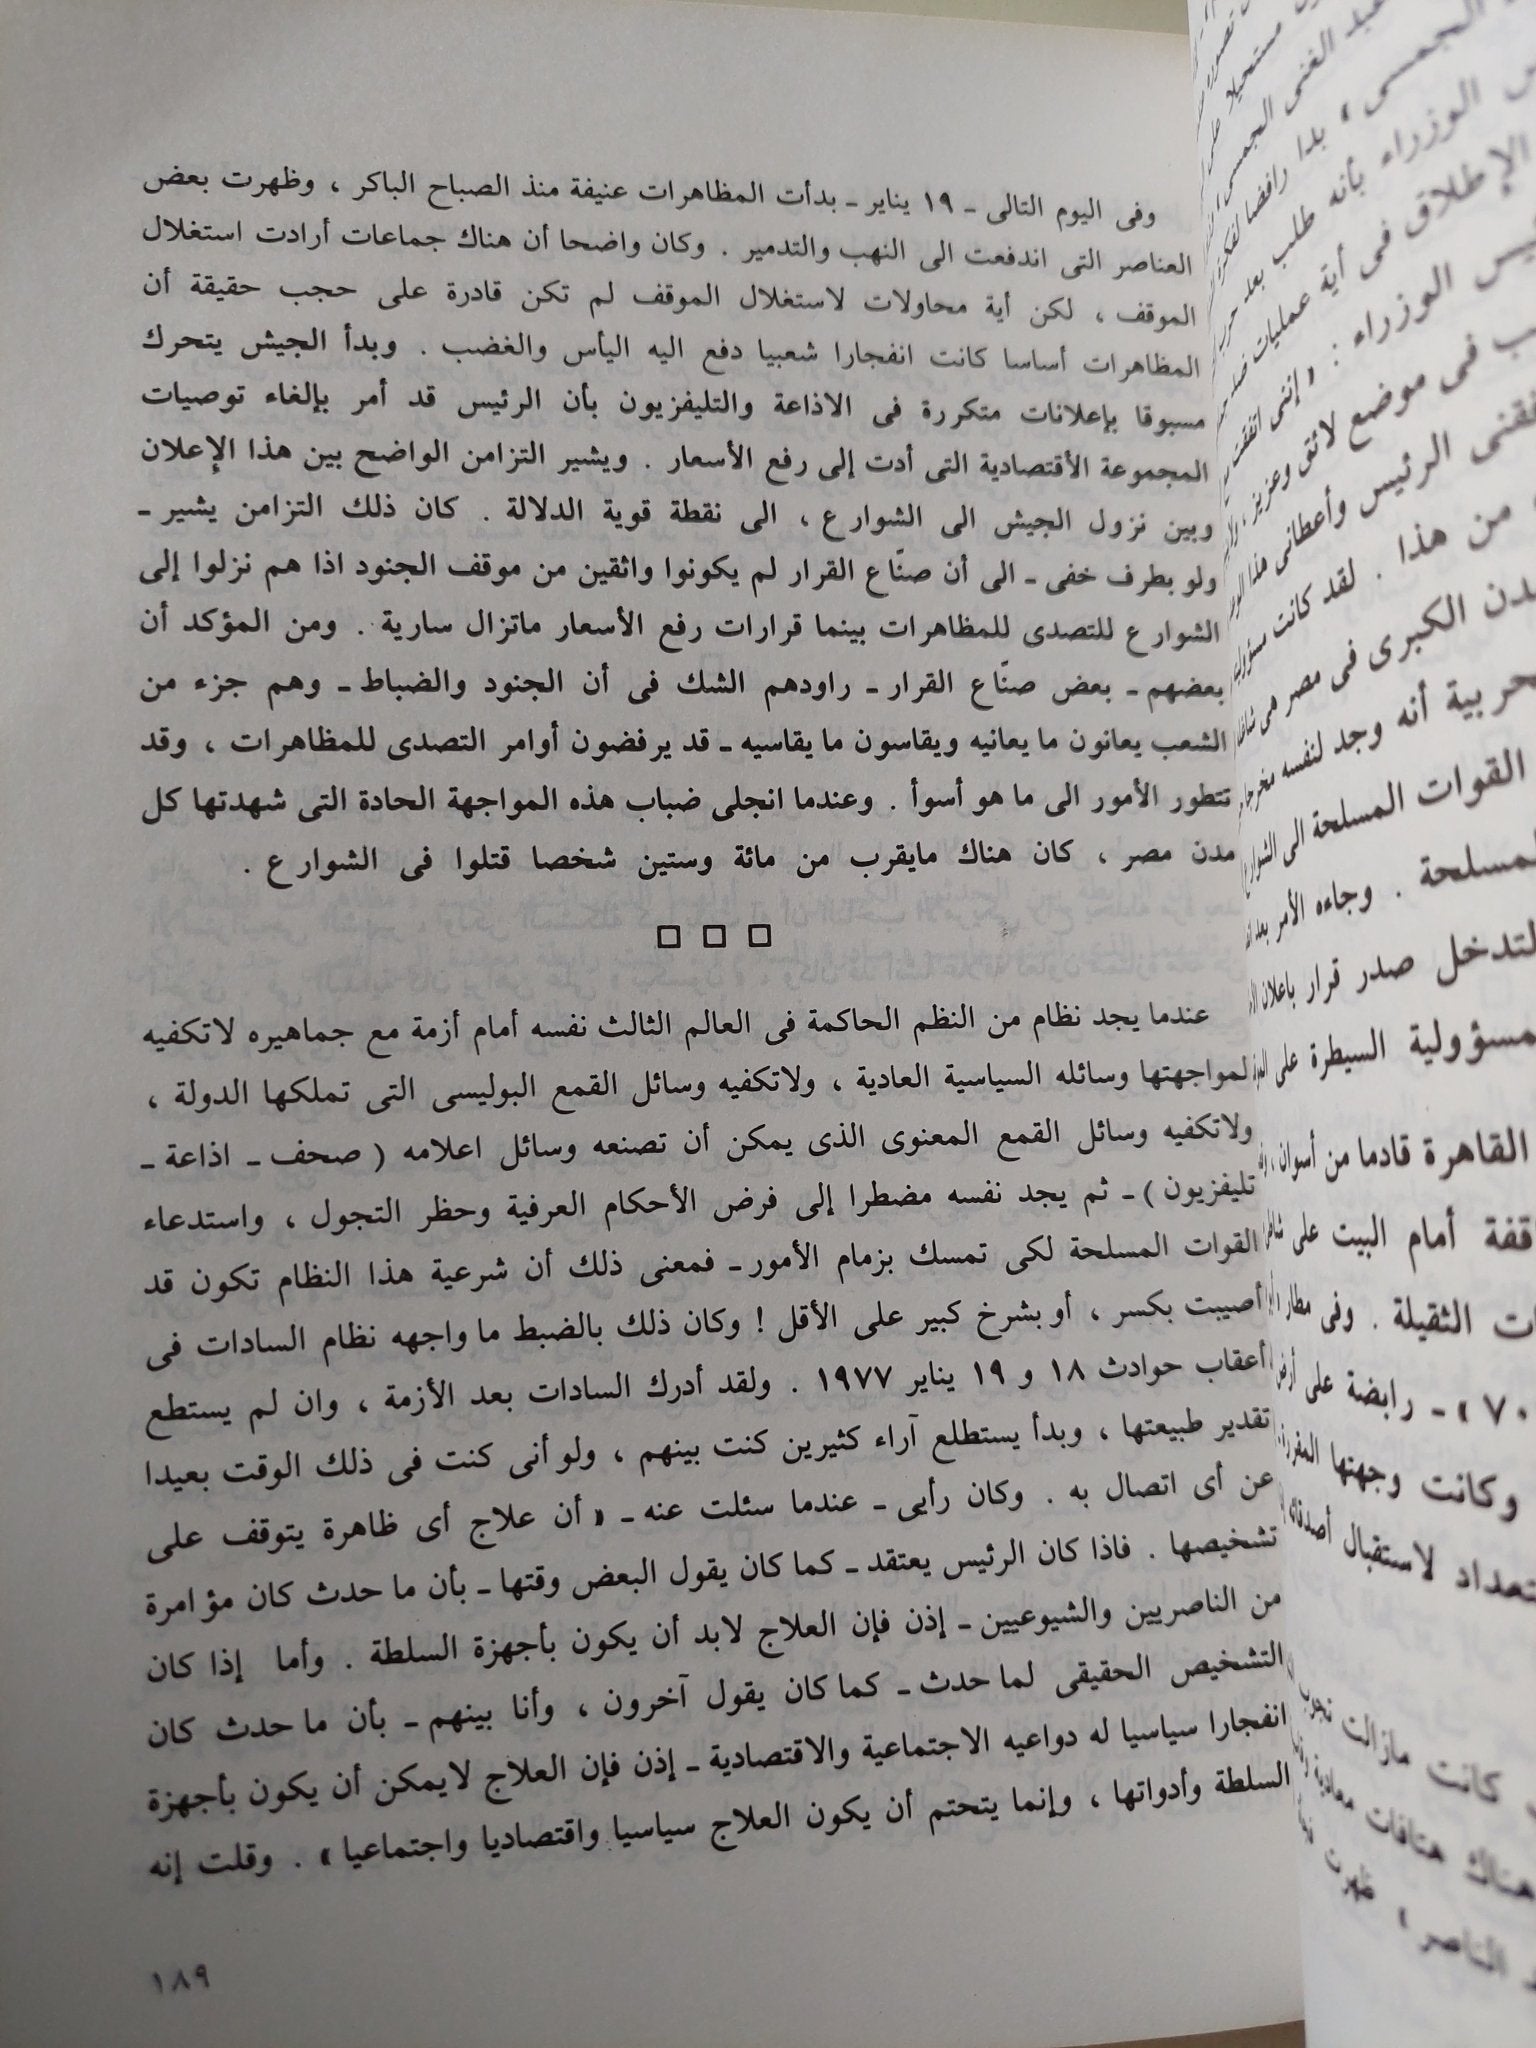 وفى اليوم التالى ـ ١٩ يناير ـ بدأت المظاهرات عنيفة منذ الصباح الباكر ، وظهرت بعض
العناصر التى اندفعت الى النهب والتدمير . وكان واضحا أن هناك جماعات أرادت استغلال
الموقف ، لكن أية محاولات لاستغلال الموقف لم تكن قادرة على حجب حقيقة أن
المظاهرات أساسا كانت انفجارا شعبيا دفع اليه اليأس والغضب . وبدأ الجيش يتحرك
مسبوقا بإعلانات متكررة فى الاذاعة والتليفزيون بأن الرئيس قد أمر بإلغاء توصيات
المجموعة الأقتصادية التى أدت إلى رفع الأسعار . ويشير التزامن الواضح بين هذا الإعلان
وبين نزول الجيش الى الشوارع ، الى نقطة قوية الدلالة . كان ذلك التزامن يشير ـ
ولو بطرف خفى ـ الى أن صنّاع القرار لم يكونوا واثقين من موقف الجنود اذا هم نزلوا إلى
الشوارع للتصدى للمظاهرات بينما قرارات رفع الأسعار ماتزال سارية . ومن المؤكد أن
بعضهم ـ بعض صنّاع القرار ـ راودهم الشك فى أن الجنود والضباط ـ وهم جزء من
الشعب يعانون ما يعانيه ويقاسون ما يقاسيه ـ قد يرفضون أوامر التصدى للمظاهرات ، وقد
تتطور الأمور الى ما هو أسوأ . وعندما انجلى ضباب هذه المواجهة الحادة التى شهدتها كل
مدن مصر ، كان هناك مايقرب من مائة وستين شخصا قتلوا فى الشوارع .
عندما يجد نظام من النظم الحاكمة فى العالم الثالث نفسه أمام أزمة مع جماهيره لاتكفيه
لمواجهتها وسائله السياسية العادية ، ولاتكفيه وسائل القمع البوليسى التى تملكها الدولة ،
ولاتكفيه وسائل القمع المعنوى الذى يمكن أن تصنعه وسائل اعلامه ( صحف ـ اذاعة ـ
تليفزيون ) ـ ثم يجد نفسه مضطرا إلى فرض الأحكام العرفية وحظر التجول ، واستدعاء
القوات المسلحة لكى تمسك بزمام الأمور ـ فمعنى ذلك أن شرعية هذا النظام تكون قد
أصيبت بكسر ، أو بشرخ كبير على الأقل ! وكان ذلك بالضبط ما واجهه نظام السادات فى
أعقاب حوادث ١٨ و ١٩ يناير ١٩٧٧ . ولقد أدرك السادات بعد الأزمة ، وان لم يستطع
تقدير طبيعتها ، وبدأ يستطلع آراء كثيرين كنت بينهم ، ولو أنى كنت فى ذلك الوقت بعيدا
عن أى اتصال به . وكان رأيى ـ عندما سئلت عنه ـ « أن علاج أى ظاهرة يتوقف على
تشخيصها . فاذا كان الرئيس يعتقد ـ كما كان يقول البعض وقتها ـ بأن ما حدث كان مؤامرة
من الناصريين والشيوعيين ـ إذن فإن العلاج لابد أن يكون بأجهزة السلطة . وأما إذا كان
التشخيص الحقيقى لما حدث ـ كما كان يقول آخرون ، وأنا بينهم ـ بأن ما حدث كان
انفجارا سياسيا له دواعيه الاجتماعية والاقتصادية ـ إذن فإن العلاج لايمكن أن يكون بأجهزة
السلطة وأدواتها ، وإنما يتحتم أن يكون العلاج سياسيا واقتصاديا واجتماعيا » . وقلت إنه
١٨٩
عبد الغنى الجمسى
الجمسى » بدا رافضا
الوزراء بأنه طلب بعد حرب
الإطلاق فى أية عمليات
الوزراء : « إننى اتفقت
فى موضع لائق وعزيز
الرئيس وأعطانى هذا
من هذا . لقد كانت
الكبرى فى مصر هى
أنه وجد لنفسه مخرجا
القوات المسلحة الى الشوارع
. وجاءه الأمر بعد
صدر قرار باعلان
السيطرة على
القاهرة قادما من أسوان
أمام البيت على
الثقيلة . وفى مطار
رابضة على
وكانت وجهتها
لاستقبال
كانت مازالت
هناك هتافات معادية
ظهرت